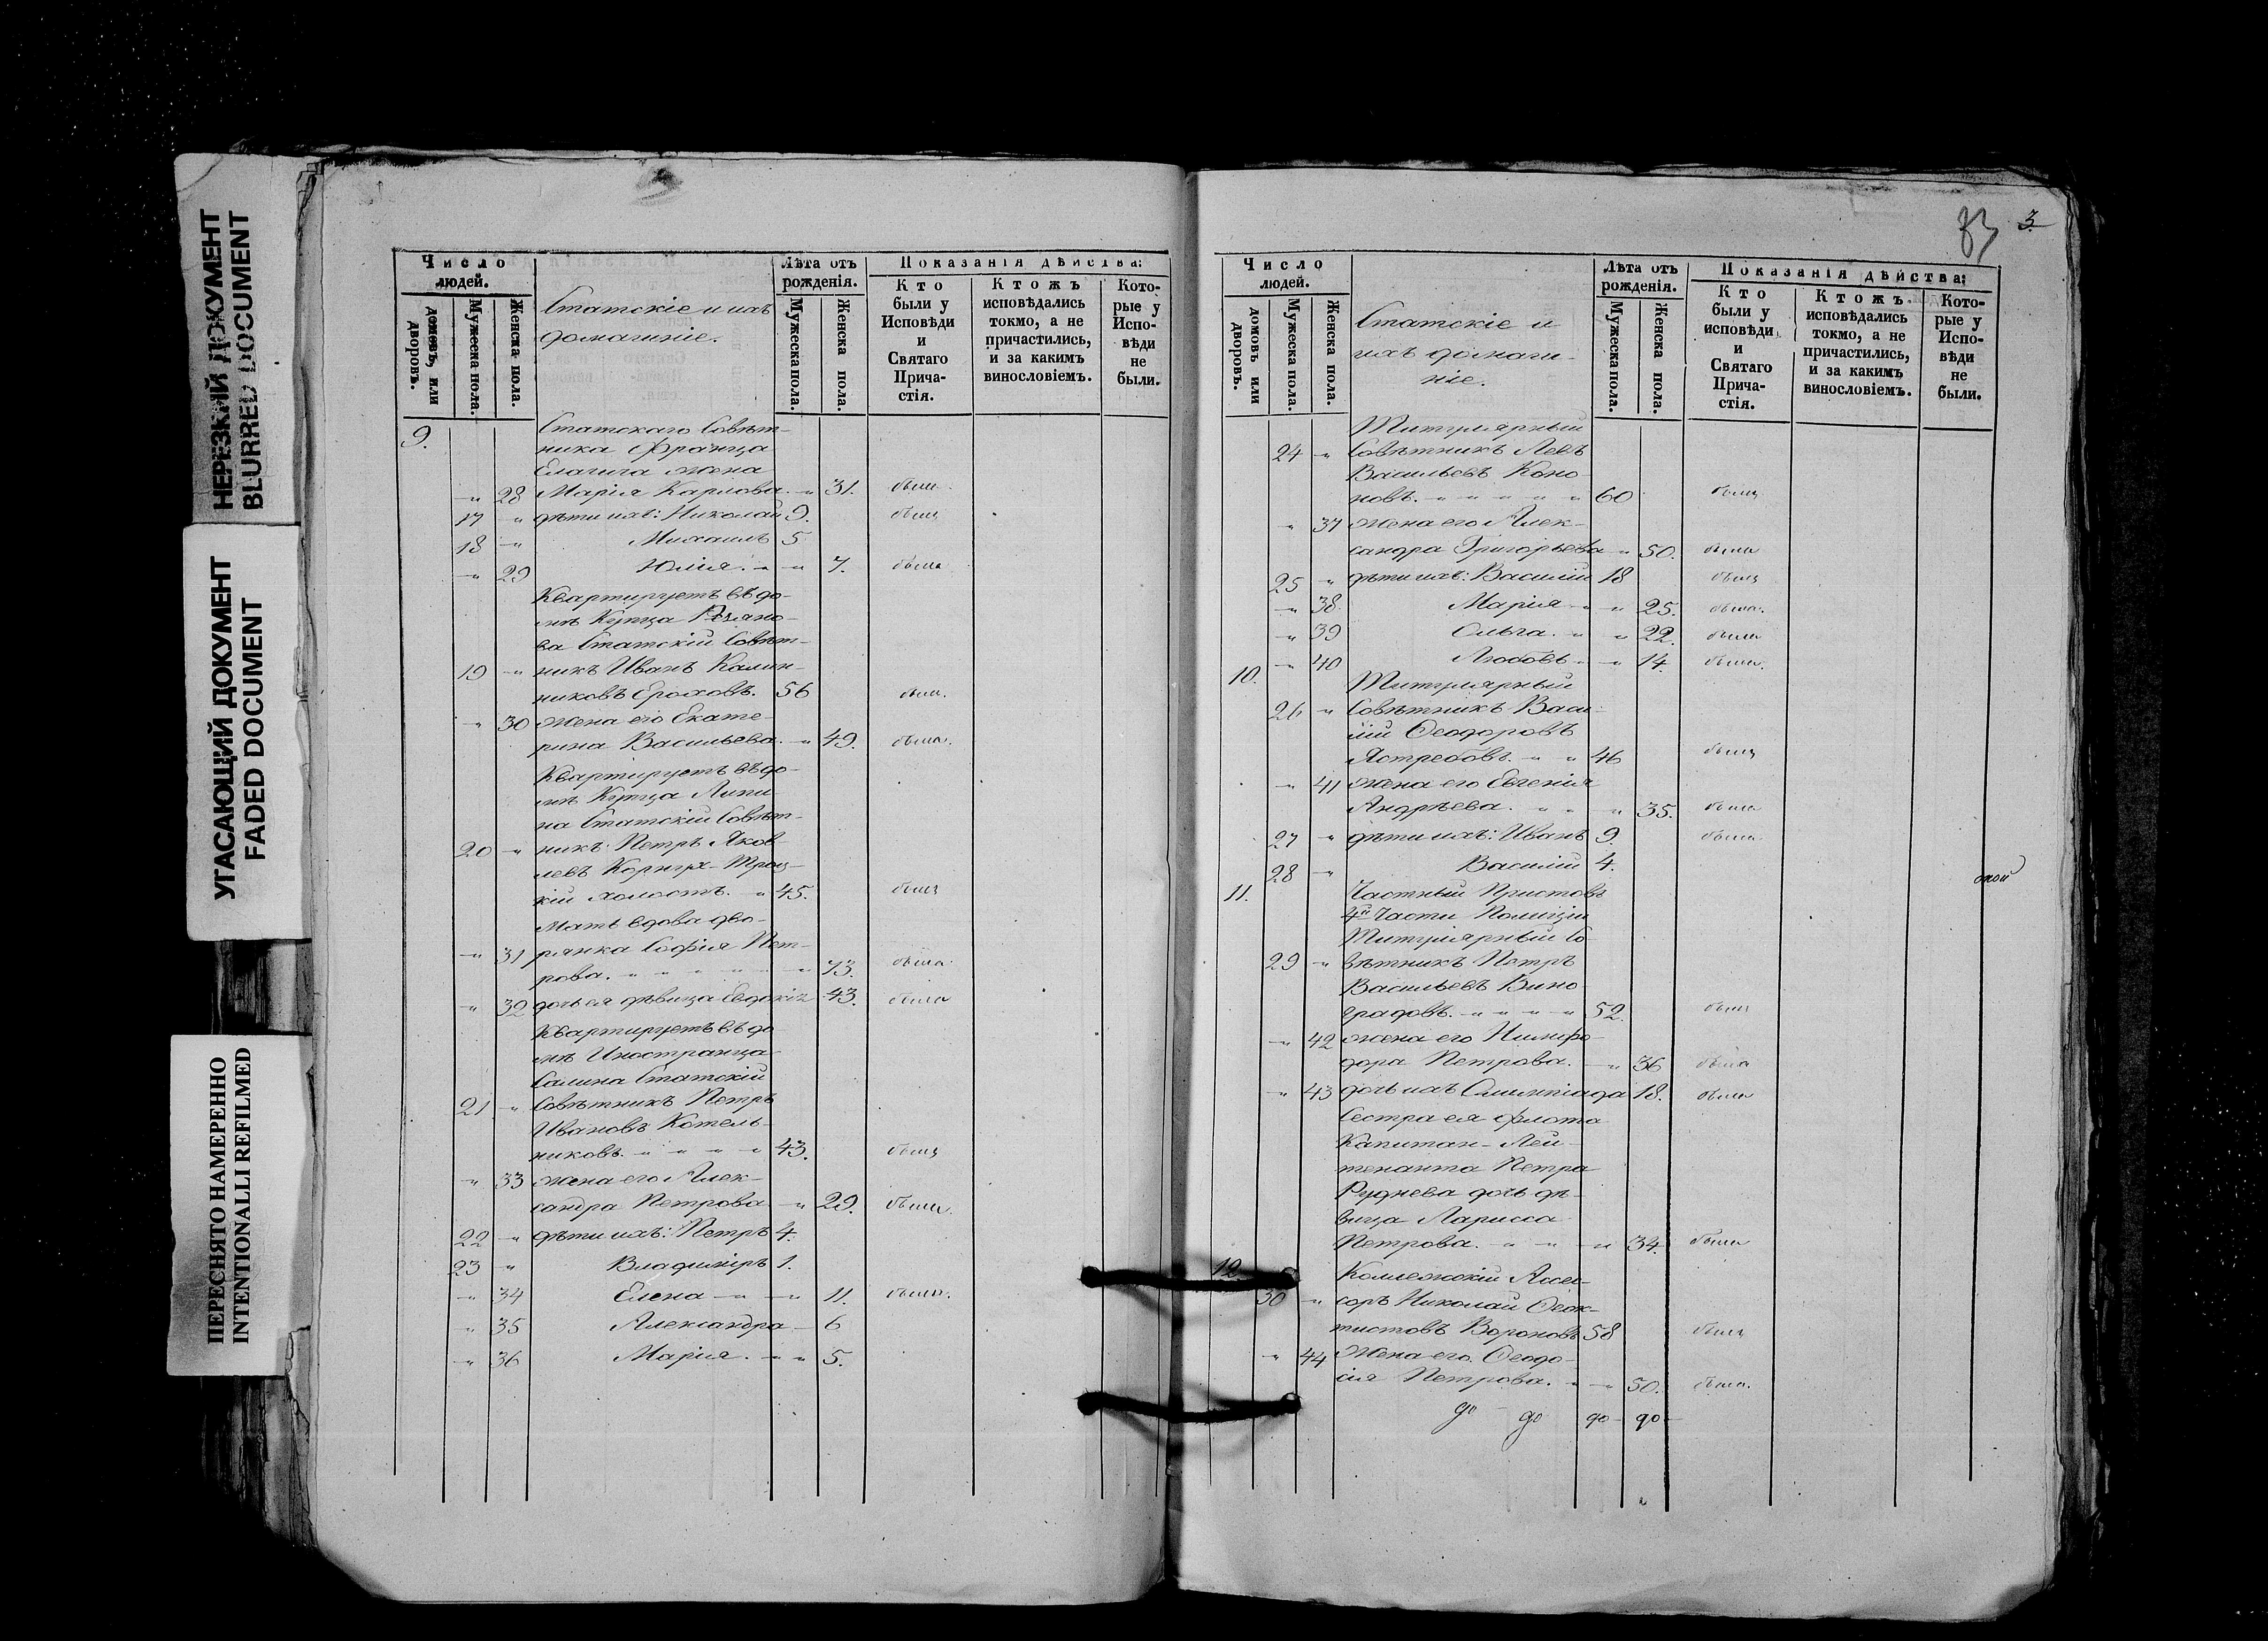 НЕРЕЗКИЙ ДОКУМЕНТ
BLURRED DOCUMENT
УГАСАЮЩИЙ ДОКУМЕНТ
FADED DOCUMENT
ПЕРЕСНЯТО НАМЕРЕННО
INTENTIONALLI REFILMED
Число людей.
домовъ, или дворовъ.
Мужеска пола.
Женска пола.
Статскіе и ихъ
домашніе.
Лѣта отъ рожденія.
Мужеска пола.
Женска пола.
Показанія дѣйства:
Кто были у Исповѣди и Святаго Причастія.
Ктожъ исповѣдались токмо, а не причастились, и за какимъ винословіемъ.
Которые у Исповѣди не были.
9. Статскаго Совѣт-
ника Франца
Елагича жена
" 28 Марія Карлова. " 31. была
17 " дѣти ихъ: Николай 9. былъ
18 " Михаилъ 5
" 29 Юлія. " " 7. была
Квартируетъ въ до-
мѣ Купца Резано-
ва Статскій Совѣт-
19 " никъ Иванъ Калин-
никовъ Ероховъ. 56 былъ.
" 30 жена его Екате-
рина Васильева. " 49. была.
Квартируетъ въ до-
мѣ Купца Липи
на Статскій Совѣт-
20 " никъ Петръ Яков-
левъ Корнухъ-Троц-
кій холостъ. " 45. былъ
Мать вдова дво-
" 31 рянка Софія Пет-
рова. " " " " " 73. была
" 32 дочь ея дѣвица Евдокія 43. была
Квартируетъ въ до
мѣ Иностранца
Салина Статскій
21 " Совѣтникъ Петръ
Ивановъ Котель-
никовъ. " " " " 43. былъ
" 33 жена его Алек-
сандра Петрова. " 29. была.
22 " дѣти ихъ: Петръ 4.
23 " Владиміръ 1.
" 34 Елена " " 11. была.
" 35 Александра 6
" 36 Марія. " " 5.
3.
Число людей.
домовъ или дворовъ.
Мужеска пола.
Женска пола.
Статскіе и
ихъ домаш-
ніе.
Лѣта отъ рожденія.
Мужеска пола.
Женска пола.
Показанія дѣйства:
Кто были у исповѣди и Святаго Причастія.
Ктожъ исповѣдались токмо, а не причастились, и за какимъ винословіемъ.
Которые у Исповѣди не были.
Титулярный
24 " Совѣтникъ Левъ
Васильевъ Коно-
новъ. " " " " " 60 былъ
" 37 жена его Алек-
сандра Григорьева " 50. была
25 " дѣти ихъ: Василій 18 былъ
" 38 Марія " " 25. была.
" 39 Ольга. " " 22. была
" 40 Любовь " " 14. была.
10. Титулярный
26 " Совѣтникъ Васи-
лій Ѳеодоровъ
Ястребовъ. " " 46 былъ
" 41 жена его Евгенія
Андрѣева. " " " 35. была
27 " дѣти ихъ: Иванъ 9. былъ
28 " Василій 4.
11. Частный Приставъ
4й Части Полиціи
Титулярный Со-
29 " вѣтникъ Петръ
Васильевъ Вино-
градовъ. " " " " 52. былъ
" 42 жена его Нимфо-
дора Петрова. " 36 была
" 43 дочь ихъ Олимпіада 18. была
Сестра ея флота
Капитан-Лей-
тенанта Петра
Руднева дочь дѣ-
вица Ларисса
Петрова. " " " 34. была
12 Коллежскій Ассес-
30 " соръ Николай Ѳеок-
тистовъ Вороновъ 58 былъ
" 44 жена его Ѳеодо-
сія Петрова. " " 50. была.